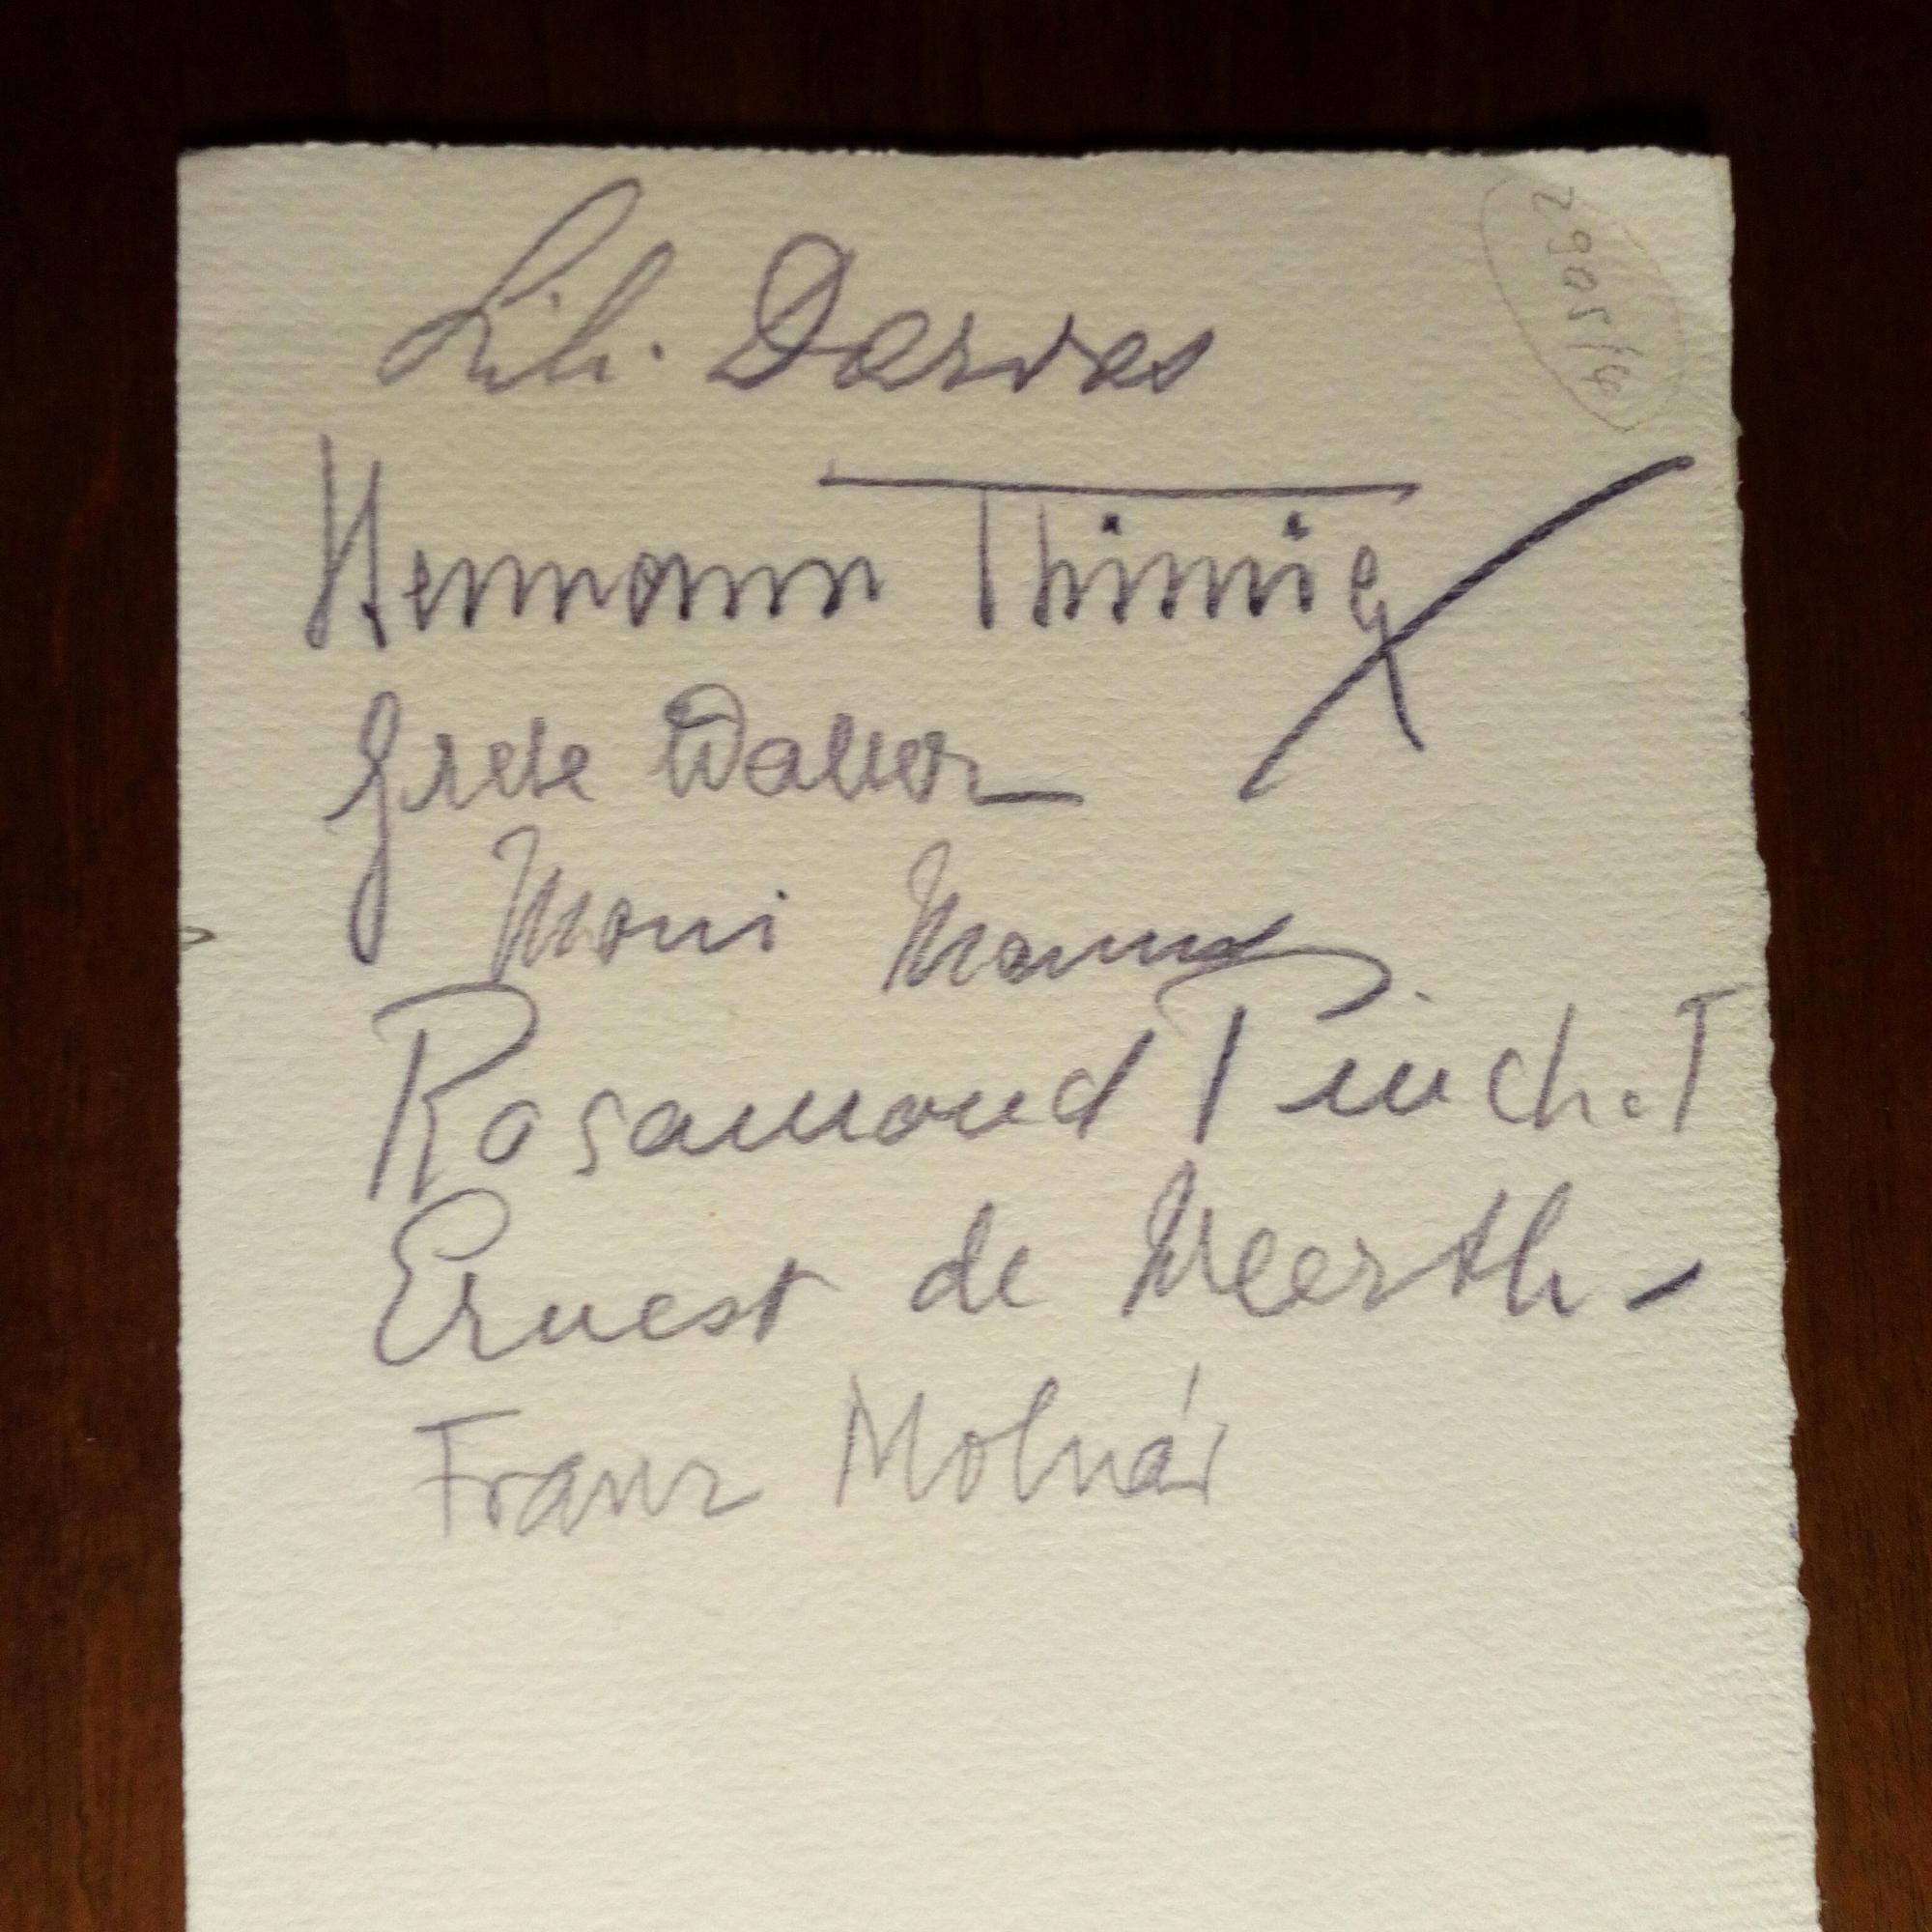 Lili Darvas
Hermann Thimig
Grete Walter
Moni Mann
Rosamond Pinchot
Ernest de Weerth -
Franz Molnár